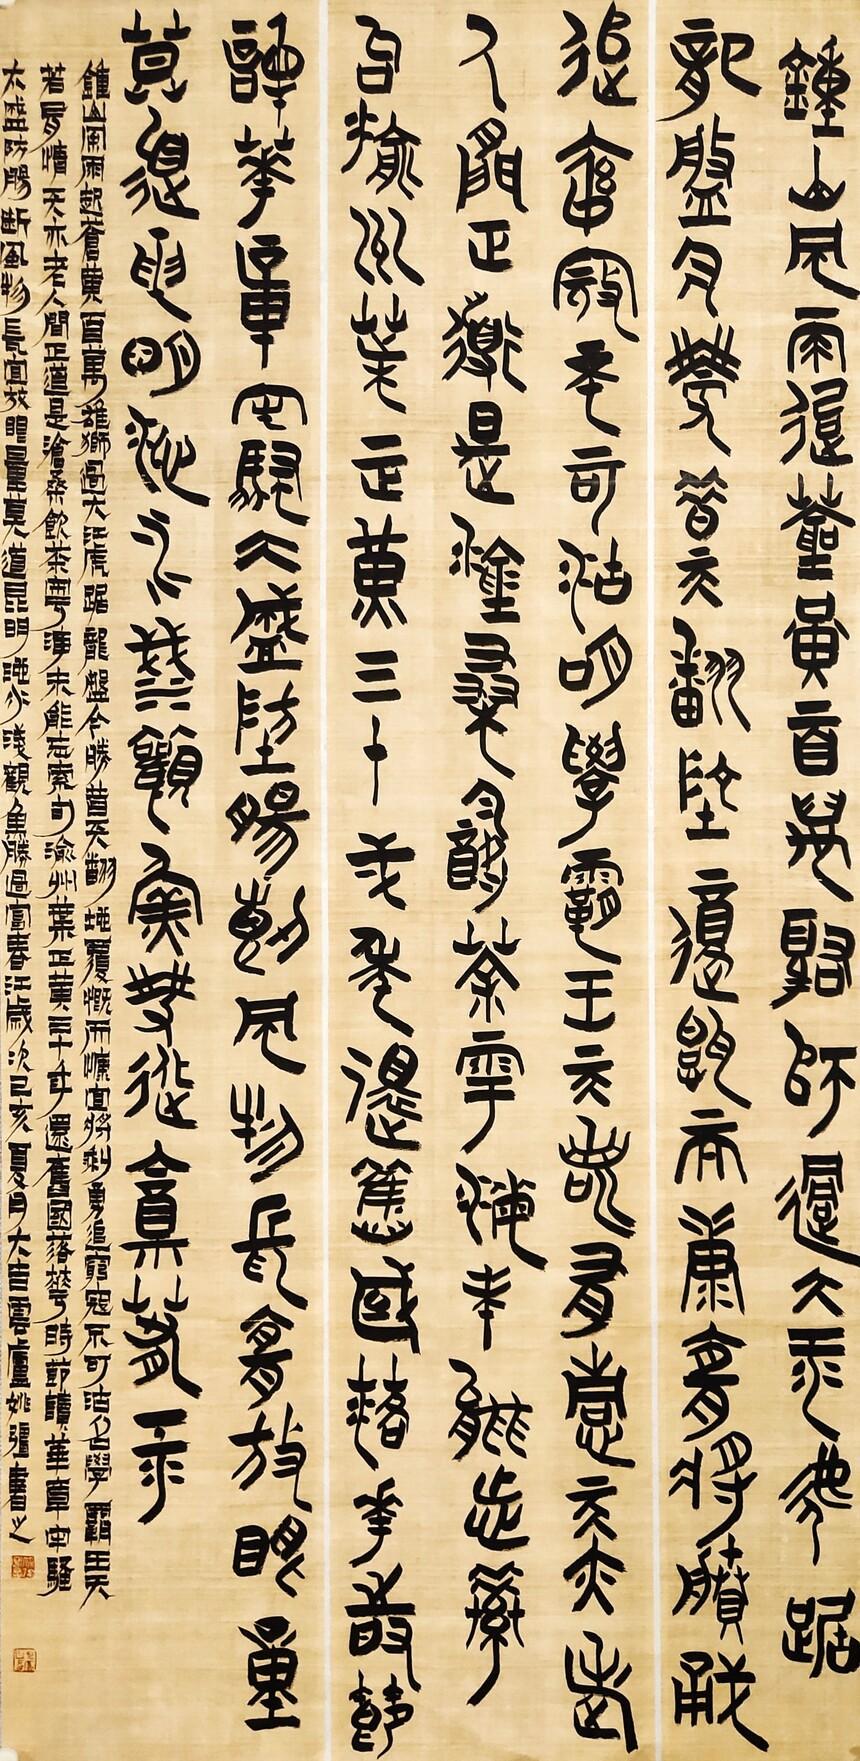 鍾山風雨起蒼黃百萬雄師過大江虎踞
龍盤今勝昔天翻地覆慨而慷宜將剩勇
追窮寇不可沽名學霸王天若有情天亦老
人間正道是滄桑飲茶粵海未能忘索
句渝州葉正黃三十弌年還舊國落花時節
讀華章牢騷太盛防腸斷風物長宜放眼量
莫道昆明池水淺觀魚勝過富春江
鍾山風雨起蒼黃百萬雄獅過大江虎踞龍盤今勝昔天翻地覆慨而慷宜將剩勇追窮寇不可沽名學霸王天
若有情天亦老人間正道是滄桑飲茶粵海未能忘索句渝州葉正黃三十年還舊國落花時節讀華章牢騷
太盛防腸斷風物長宜放眼量莫道昆明池水淺觀魚勝過富春江歲次己亥夏月大吉雲廬姚強書之